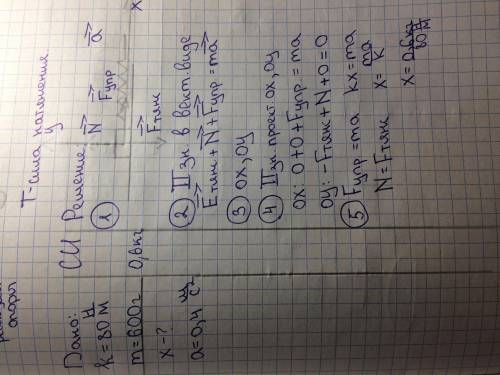 опоры
Т-сила натяжения
Дано:
k=80 Н/м
m=600г
x-?
a=0,4 м/с²
СИ
0,6кг
Решение
у
① N Fупр a
x
Fтяж
② II зн в вект. виде
Fтяж + N + Fупр = ma
③ ox, oy
④ II зн. проект. ox, oy
ox: 0+0+Fупр=ma
oy: -Fтяж+N+0=0
⑤ Fупр=ma kx=ma
N=Fтяж x=ma/k